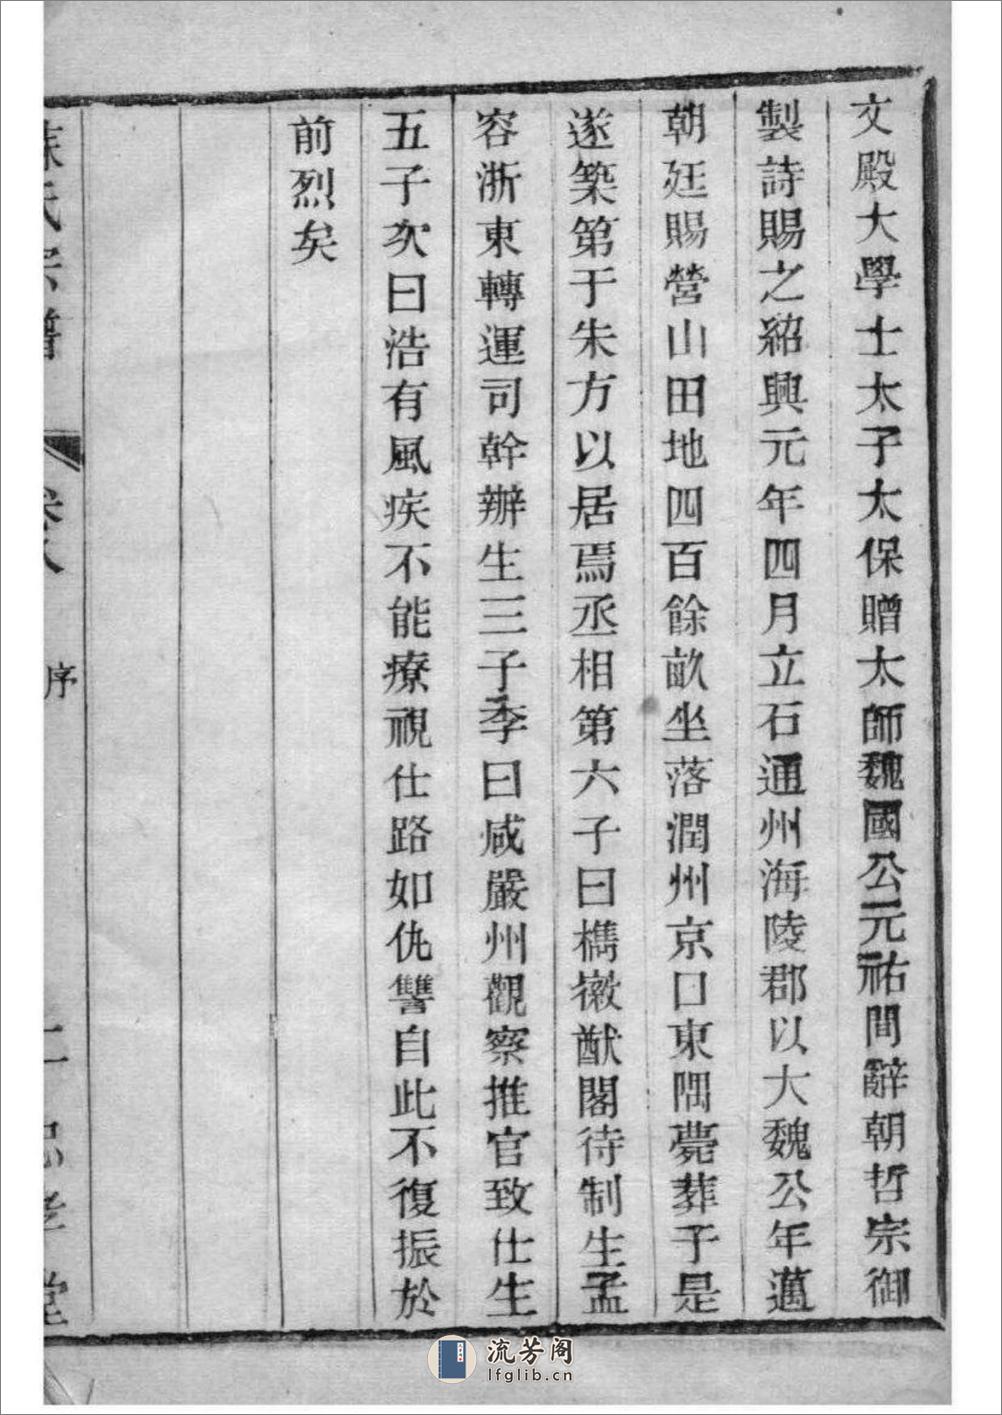 文殿大學士太子太保贈太師魏國公元祐間辭朝哲宗御
製詩賜之紹興元年四月立石通州海陵郡以大魏公年邁
朝廷賜營山田地四百餘畝坐落潤州京口東隅薨葬于是
遂築第于朱方以居焉丞相第六子曰檇徽猷閣待制生孟
容浙東轉運司幹辦生三子季曰咸嚴州觀察推官致仕生
五子次曰浩有風疾不能療視仕路如仇讐自此不復振於
前烈矣
氏宗譜
序
堂
流芳阁
lfglib.cn